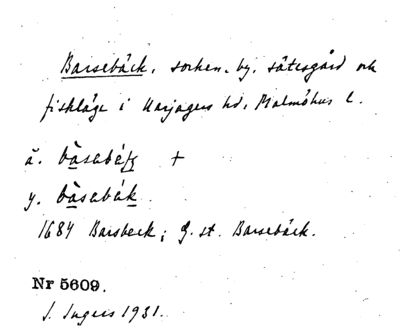 Barsebäck, socken, by, sätesgård och
fiskläge i Harjagers hd, Malmöhus l.
ä. bàsabák +
y. bàsabák
1684 Barsbeck; g. st. Barsebäck.
Nr 5609.
I. Ingers 1931.